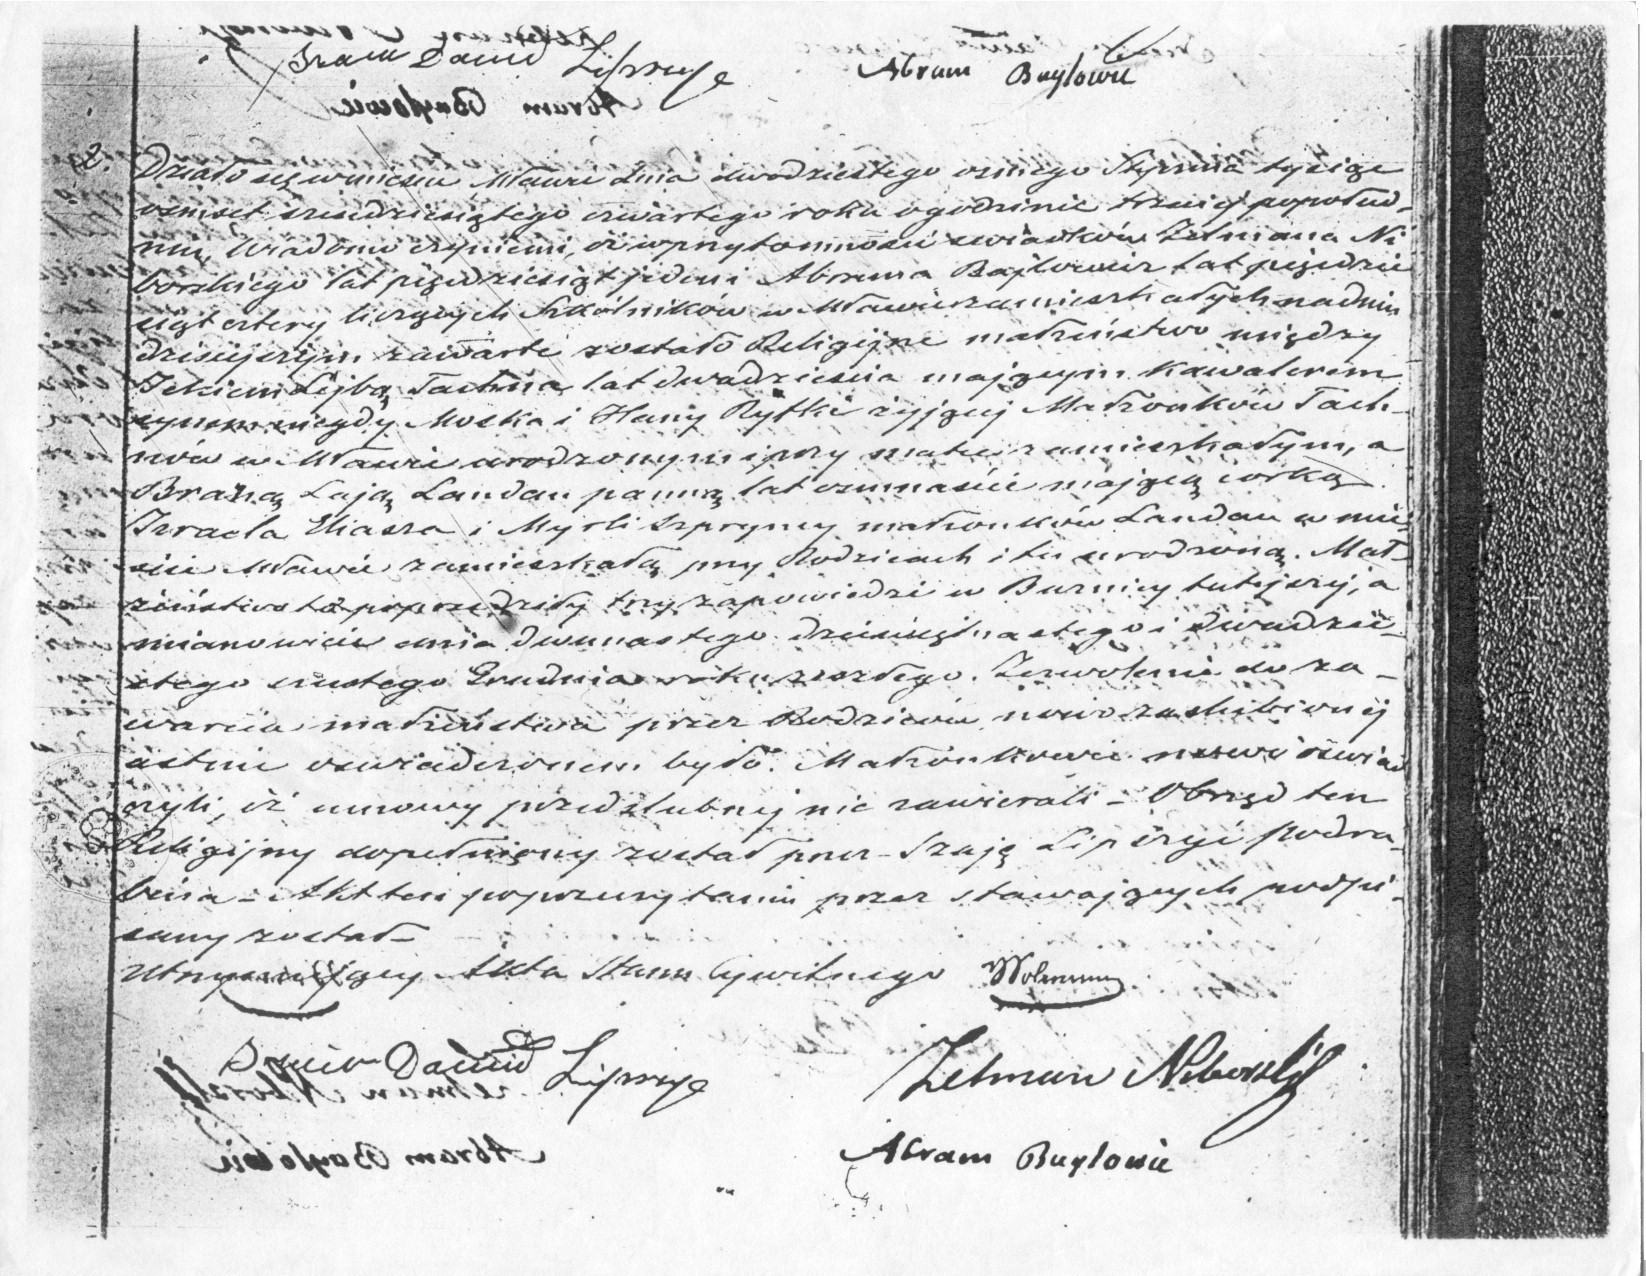 Szaia Dawid Lipszye
Abram Baylowic
2.
Działo się w mieście Mławie dnia dwudziestego ósmego Stycznia tysiąc
ośmset sześćdziesiątego czwartego roku o godzinie trzeciej popołud-
niu, Wiadomo czyniemy, iż w przytomności świadków Zelmana Ni
borskiego lat pięćdziesiąt jeden i Abrama Bajlowicz lat pięćdzie
siąt cztery liczących Szkólników w Mławie zamieszkałych na dniu
dzisiejszym zawarte zostało Religijne małżeństwo między
Ickiem Lejbą Tachna lat dwadzieścia mającym kawalerem
synem niegdy Moska i Hany Ryfki żyjącej Małżonków Tach-
nów w Mławie urodzonym i przy matce zamieszkałym, a
Braną Łają Landau panną lat osiemnaście mającą córką
Izraela Eliasza i Myrli Szpryncy małżonków Landau w mie
ście Mławie zamieszkałą przy Rodzicach i tu urodzoną. Mał-
żeństwo to poprzedziły trzy zapowiedzi w Buźnicy tutejszej, a
mianowicie dnia dwunastego dziewiętnastego i dwudzie-
stego szóstego Grudnia roku zeszłego. Zezwolenie do za-
warcia małżeństwa przez Rodziców nowozaślubionej
ustnie oświadczonem było. Małżonkowie nowi oświad
czyli, iż umowy przedślubnej nie zawierali - Obrzęd ten
Religijny dopełniony został przez Szaję Lipszyc Podra-
bina - Akt ten po przeczytaniu przez stawających podpi-
sany został -
Utrzymujący Akta Stanu Cywilnego
Dawid Lipszye
Zelman Niborski
Abram Baylowic